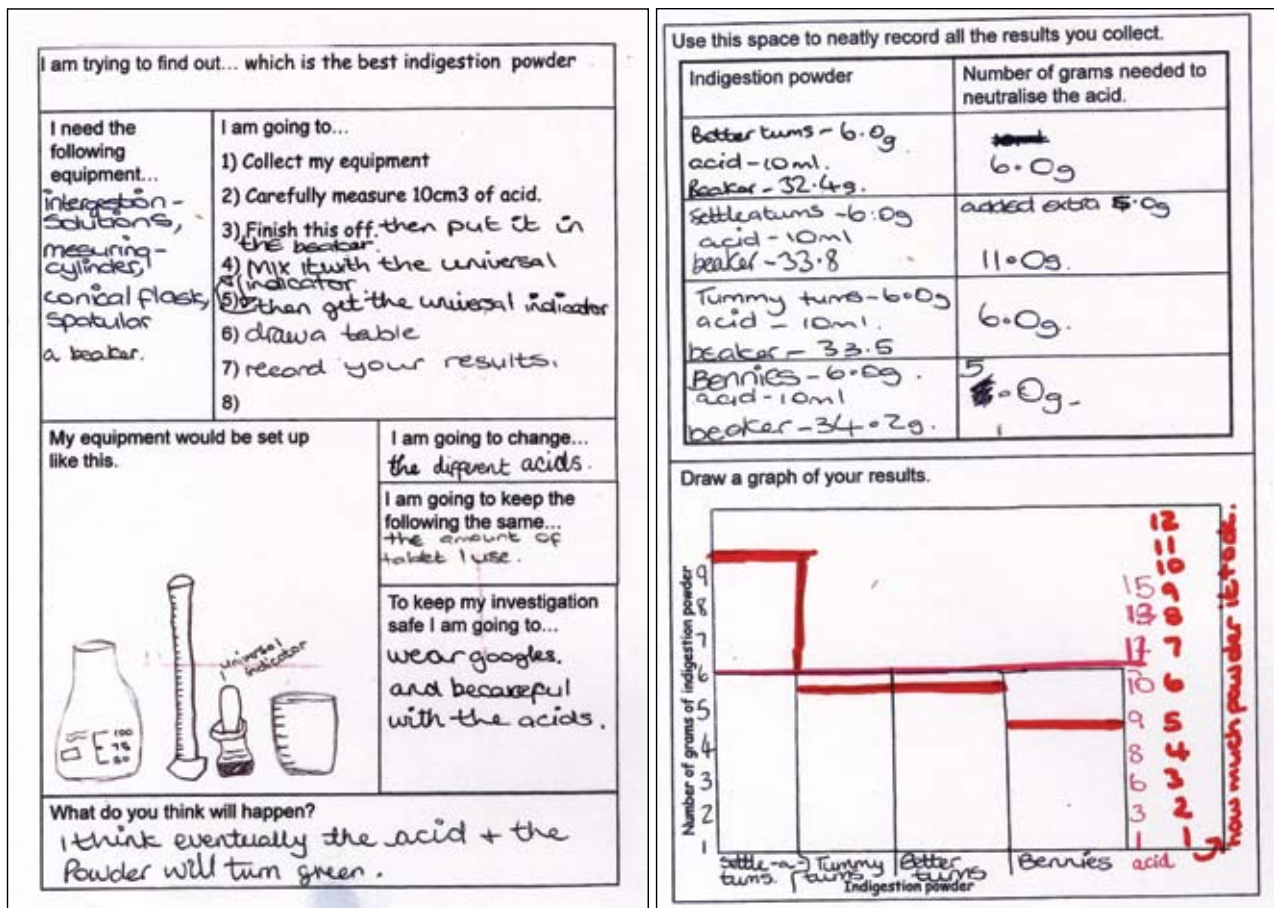 I am trying to find out... which is the best indigestion powder
I need the
following
equipment...
intergestion -
solutions,
mesuring -
cylinder,
conical flask,
spatular
a beaker.
I am going to...
1) Collect my equipment
2) Carefully measure 10cm3 of acid.
3) Finish this off. then put it in
the beaker.
4) Mix it with the universal
indicator
5) then get the universal indicator
6) draw a table
7) record your results.
8)
My equipment would be set up
like this.
100
75
50
universal
indicator
I am going to change...
the different acids.
I am going to keep the
following the same...
the amount of
tablet I use.
To keep my investigation
safe I am going to...
wear googles.
and be careful
with the acids.
What do you think will happen?
i think eventually the acid + the
Powder will turn green.
Use this space to neatly record all the results you collect.
Indigestion powder
Number of grams needed to
neutralise the acid.
Better tums - 6.0g
acid - 10ml.
Beaker - 32.4g.
6.0g
settleatums - 6.0g
acid - 10ml
beaker - 33.8
added extra 5.0g
11.0g.
Tummy tums - 6.0g
acid - 10ml.
beaker - 33.5
6.0g.
Bennies - 6.0g.
acid - 10ml
beaker - 34.2g.
5.0g-
Draw a graph of your results.
Number of grams of indigestion powder
9
8
7
6
5
4
3
2
1
15
13
10
9
8
6
3
1
acid
12
11
10
9
8
7
6
5
4
3
2
1
how much powder it took.
Settle-a-
tums.
Tummy
tums
Better
tums
Bennies
Indigestion powder